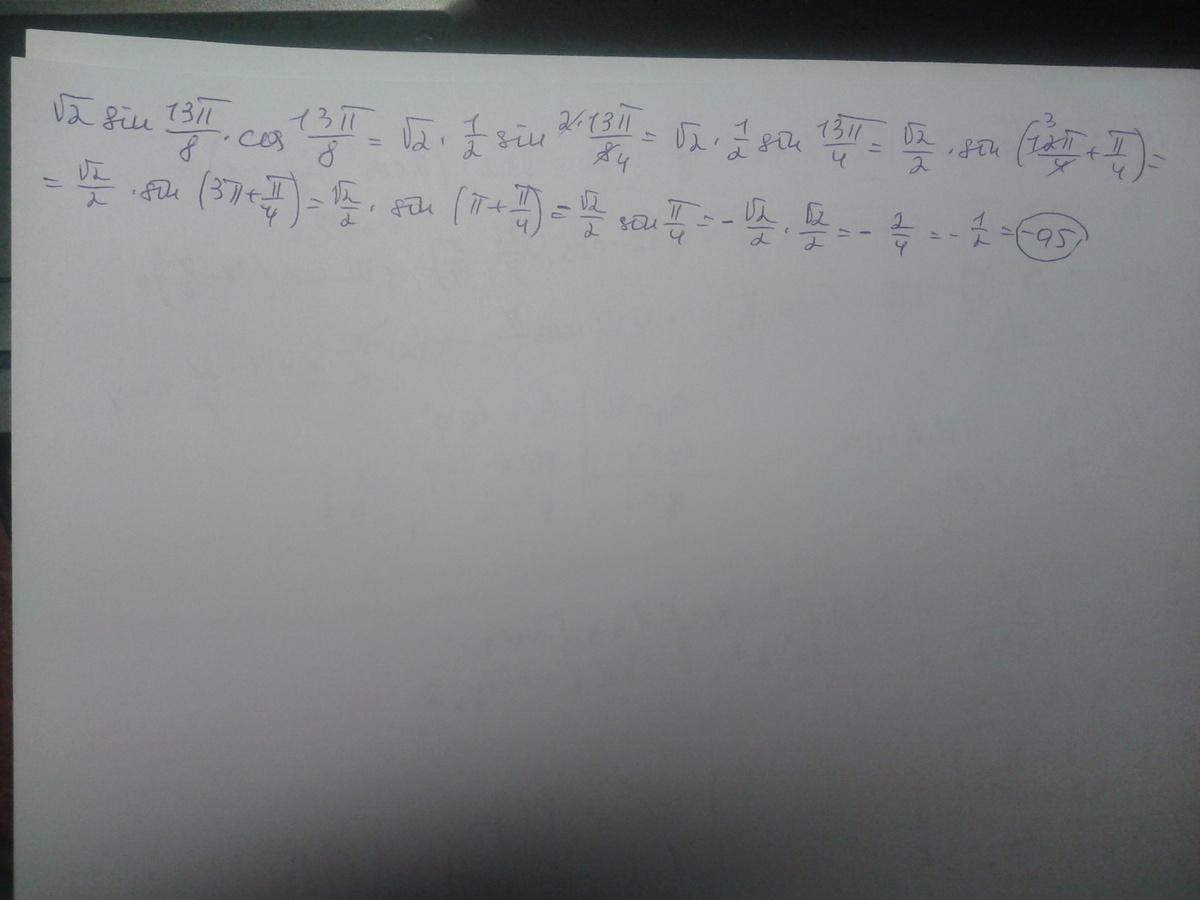 √2 sin 13π/8 · cos 13π/8 = √2 · 1/2 sin 2·13π/8 4 = √2 · 1/2 sin 13π/4 = √2/2 · sin (3 12π/4 + π/4) =
= √2/2 · sin (3π + π/4) = √2/2 · sin (π + π/4) = -√2/2 sin π/4 = - √2/2 · √2/2 = - 2/4 = - 1/2 = -0,5